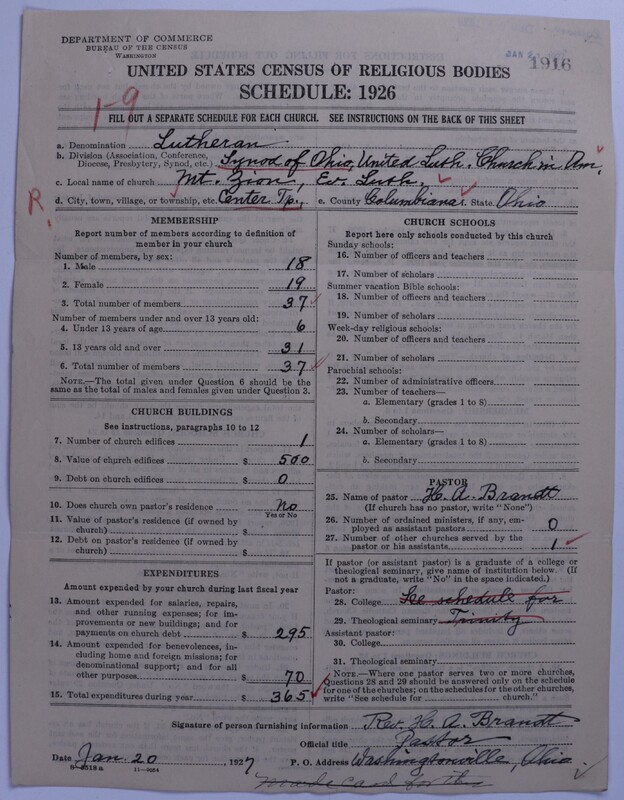 DEPARTMENT OF COMMERCE
BUREAU OF THE CENSUS
WASHINGTON
JAN 2
1916
UNITED STATES CENSUS OF RELIGIOUS BODIES
SCHEDULE: 1926
1-9
FILL OUT A SEPARATE SCHEDULE FOR EACH CHURCH. SEE INSTRUCTIONS ON THE BACK OF THIS SHEET
a. Denomination Lutheran
b. Division (Association, Conference, Diocese, Presbytery, Synod, etc.) Synod of Ohio, United Luth. Church in Am.
c. Local name of church Mt. Zion, Ev. Luth.
R.
d. City, town, village, or township, etc. Center Tp. e. County Columbiana. State Ohio
MEMBERSHIP
Report number of members according to definition of
member in your church
Number of members, by sex:
1. Male 18
2. Female 19
3. Total number of members 37
Number of members under and over 13 years old:
4. Under 13 years of age 6
5. 13 years old and over 31
6. Total number of members 37
NOTE.—The total given under Question 6 should be
same as the total of males and females given under Question 3.
CHURCH BUILDINGS
See instructions, paragraphs 10 to 12
7. Number of church edifices 1
8. Value of church edifices $ 500
9. Debt on church edifices $ 0
10. Does church own pastor's residence No
Yes or No
11. Value of pastor's residence (if owned by
church) $
12. Debt on pastor's residence (if owned by
church) $
EXPENDITURES
Amount expended by your church during last fiscal year
13. Amount expended for salaries, repairs,
and other running expenses; for im-
provements or new buildings; and for
payments on church debt $ 295
14. Amount expended for benevolences, in-
cluding home and foreign missions; for
denominational support; and for all
other purposes $ 70
15. Total expenditures during year $ 365
CHURCH SCHOOLS
Report here only schools conducted by this church
Sunday schools:
16. Number of officers and teachers
17. Number of scholars
Summer vacation Bible schools:
18. Number of officers and teachers
19. Number of scholars
Week-day religious schools:
20. Number of officers and teachers
21. Number of scholars
Parochial schools:
22. Number of administrative officers
23. Number of teachers—
a. Elementary (grades 1 to 8)
b. Secondary
24. Number of scholars—
a. Elementary (grades 1 to 8)
b. Secondary
PASTOR
25. Name of pastor H. A. Brandt
(If church has no pastor, write "None")
26. Number of ordained ministers, if any, em-
ployed as assistant pastors 0
27. Number of other churches served by the
pastor or his assistants 1
If pastor (or assistant pastor) is a graduate of a college or
theological seminary, give name of institution below. (If
not a graduate, write "No" in the space indicated.)
Pastor:
28. College See schedule for
29. Theological seminary Trinity
Assistant pastor:
30. College
31. Theological seminary
NOTE.—Where one pastor serves two or more churches,
Questions 28 and 29 should be answered only on the schedule
for one of the churches; on the schedules for the other churches,
write "See schedule for church."
Signature of person furnishing information Rev. H. A. Brandt
Official title Pastor
Date Jan. 20, 1927 P. O. Address Washingtonville, Ohio
11—9064
Made card for this